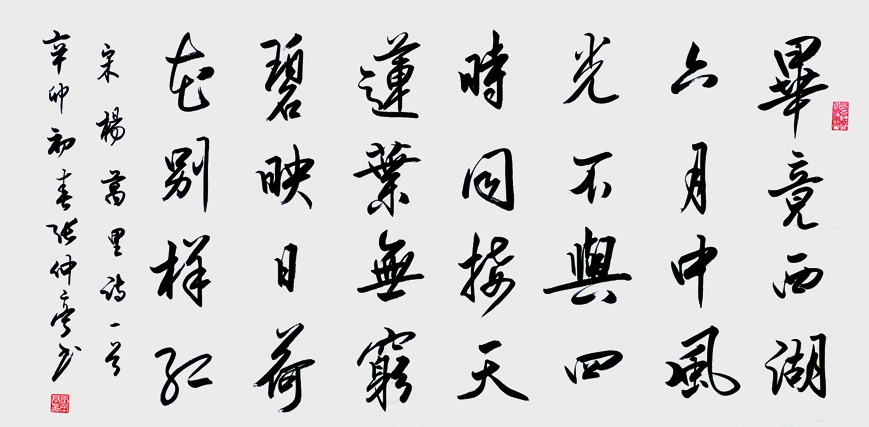 畢竟西湖
六月中風
光不與四
時同接天
蓮葉無窮
碧映日荷
花別樣紅
宋楊萬里詩一首
辛卯初春張仲亭書